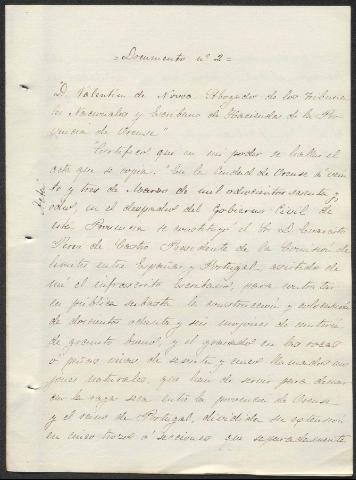 = Documento nº 2 =
"D. Valentin de Novoa Abogado de los Tribuna-
les Nacionales y Escribano de Hacienda de la Pro-
vincia de Orense"
"Certifico que en mi poder se halla el
acta que se copia: "En la Ciudad de Orense a vein-
te y tres de Marzo de mil ochocientos sesenta y
ocho, en el despacho del Gobierno Civil de
esta Provincia se constituyó el Sr D. Evaristo
Perez de Castro Presidente de la Comision de
limites entre España y Portugal, asistido de
mi el infrascrito Escribano, para contratar
en pública subasta la construccion y colocacion
de doscientos ochenta y seis mojones de materia
de granito bueno, y el grabado en las rocas
o peñas vivas de sesenta y cinco llamados mo-
jones naturales, que han de servir para demar-
car la raya seca entre la provincia de Orense
y el reino de Portugal, dividida su estension
en cinco trozos ó secciones que separadamente